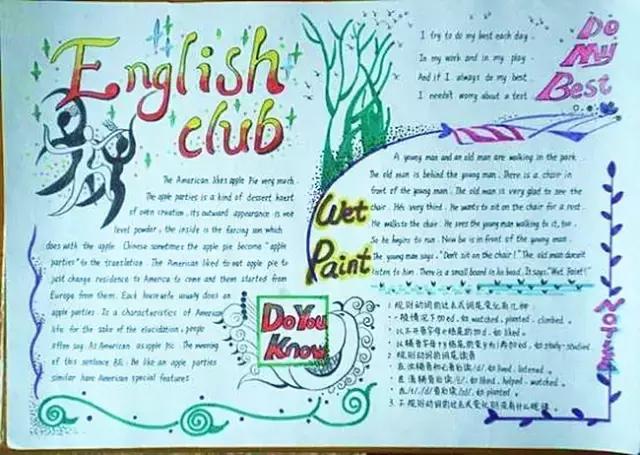 English
club
The American likes apple Pie very much.
The apple parties is a kind of dessert heart
of oven creation, its outward appearance is wet
level powder, the inside is the farcing sun which
does with the apple. Chinese sometimes the apple pie become "apple
parties" to the translation. The American liked to not apple pie to
just change residence to America to come and them started from
Europe from them. Each housewife usually does an
apple parties. Is a characteristics of American
life for the sake of the elucidation, people
often say As American as apple pie. The meaning
of this sentence Bk: Be like an apple parties
similar have American special features.
Do You
Know
I try to do my best each day.
In my work and in my play.
And if I always do my best.
I needn't worry about a test.
Do
My
Best
Wet
Paint
A young man and an old man are walking in the park.
The old man is behind the young man. There is a chair in
front of the young man. The old man is very glad to see the
chair. He's very third. He wants to sit on the chair for a rest.
He walks to the chair. He sees the young man walking to it, too.
So he begins to run. Now he is in front of the young man.
The young man says, "Don't sit on the chair!" The old man doesn't
listen to him. There is a small board in his head. It says "Wet Paint!"
1. 规则动词的过去式词尾变化有几种:
一般情况下加ed, 如 watched, planted, climbed.
以不发音字母e结尾的加d, 如 liked.
以辅音字母+y结尾的变y为i再加ed, 如 study-studied.
2. 规则动词的词尾读音
在浊辅音和元音后读/d/, 如 lived, listened.
在清辅音后读/t/, 如 liked, helped, watched.
在/t/, /d/音后读/id/, 如 planted.
3. 不规则动词的过去式变化则没有什么规律.